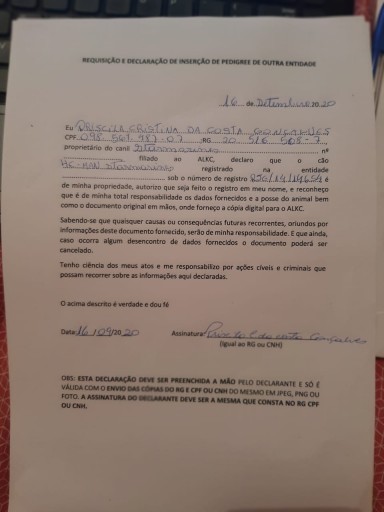 REQUISIÇÃO E DECLARAÇÃO DE INSERÇÃO DE PEDIGREE DE OUTRA ENTIDADE
16 de Setembro 20 20
Eu PRISCILA CRISTINA DA COSTA GONÇALVES
CPF 098. 567. 787-07 ,RG 20. 516 505-7
proprietário do canil Starmarinho nº
filiado ao ALKC, declaro que o cão
HE-MAN Starmarinho registrado na entidade
sob o número de registro é
de minha propriedade, autorizo que seja feito o registro em meu nome, e reconheço
que é de minha total responsabilidade os dados fornecidos e a posse do animal bem
como o documento original em mãos, onde forneço a cópia digital para o ALKC.
Sabendo-se que quaisquer causas ou consequências futuras recorrentes, oriundos por
informações deste documento fornecido, serão de minha responsabilidade. E que ainda,
caso ocorra algum desencontro de dados fornecidos o documento poderá ser
cancelado.
Tenho ciência dos meus atos e me responsabilizo por ações cíveis e criminais que
possam recorrer as informações aqui declaradas.
O acima descrito é verdade e dou fé
Data: 16 /09/20 20 Assinatura: Gonçalves
(Igual ao RG ou CNH)
OBS: ESTA DECLARAÇÃO DEVE SER PREENCHIDA A MÃO PELO DECLARANTE E SÓ É
VÁLIDA COM O ENVIO DAS CÓPIAS DO RG E CPF OU CNH DO MESMO EM JPEG, PNG OU
FOTO. A ASSINATURA DO DECLARANTE DEVE SER A MESMA QUE CONSTA NO RG CPF
OU CNH.